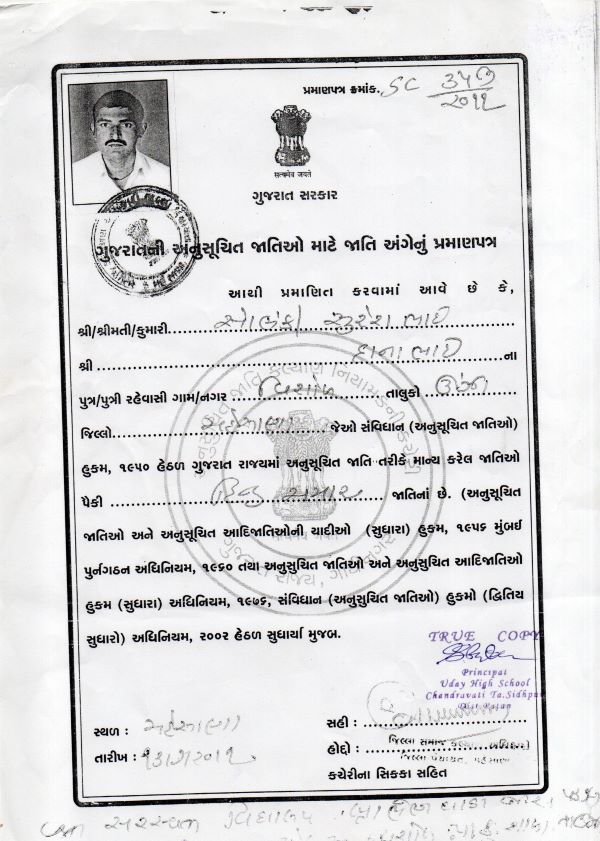 પ્રમાણપત્ર ક્રમાંક. SC ૩૫૭/૨૦૧૧
सत्यमेव जयते
ગુજરાત સરકાર
ગુજરાતની અનુસૂચિત જાતિઓ માટે જાતિ અંગેનું પ્રમાણપત્ર
આથી પ્રમાણિત કરવામાં આવે છે કે,
શ્રી/શ્રીમતી/કુમારી. સોલંકી સુરેશભાઈ
શ્રી દાનાભાઈ ના
પુત્ર/પુત્રી રહેવાસી ગામ/નગર વિસોળ તાલુકો ઊંઝા
જિલ્લો મહેસાણા જેઓ સંવિધાન (અનુસૂચિત જાતિઓ)
હુકમ, ૧૯૫૦ હેઠળ ગુજરાત રાજ્યમાં અનુસૂચિત જાતિ તરીકે માન્ય કરેલ જાતિઓ
પૈકી હિન્દુ ચમાર જાતિનાં છે. (અનુસૂચિત
જાતિઓ અને અનુસૂચિત આદિજાતિઓની યાદીઓ (સુધારા) હુકમ, ૧૯૫૬ મુંબઈ
પુર્નગઠન અધિનિયમ, ૧૯૬૦ તથા અનુસુચિત જાતિઓ અને અનુસુચિત આદિજાતિઓ
હુકમ (સુધારા) અધિનિયમ, ૧૯૭૬, સંવિધાન (અનુસૂચિત જાતિઓ) હુકમો (દ્વિતિય
સુધારો) અધિનિયમ, ૨૦૦૨ હેઠળ સુધાર્યા મુજબ.
TRUE COPY
Principal
Uday High School
Chandravati Ta.Sidhpur
Dist.Patan
સ્થળ : મહેસાણા
તારીખ :
સહી :
હોદ્દો : જિલ્લા સમાજ કલ્યાણ અધિકારી
જિલ્લા પંચાયત, મહેસાણા
કચેરીના સિક્કા સહિત